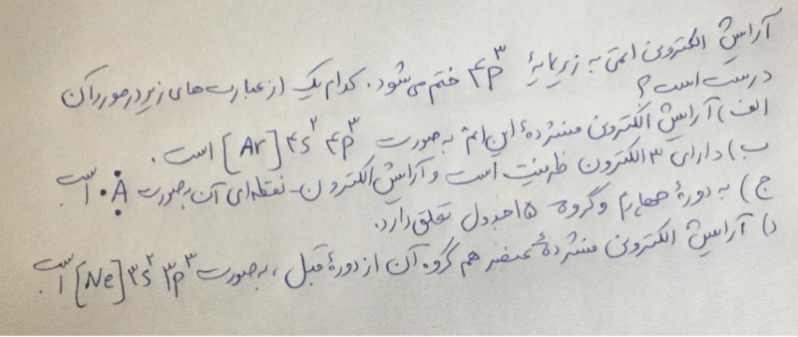 آرایش الکترونی اتمی به زیرلایهٔ ۴p³ ختم می‌شود. کدام یک از عبارت‌های زیر در مورد آن
درست است؟
الف) آرایش الکترونی فشردهٔ این اتم به صورت [Ar] ۴s² ۴p³ است.
ب) دارای ۳ الکترون ظرفیت است و آرایش الکترون - نقطه‌ای آن به صورت A است.
ج) به دورهٔ چهارم و گروه ۱۵ جدول تعلق دارد.
د) آرایش الکترونی فشردهٔ عنصر هم گروه آن از دورهٔ قبل، به صورت [Ne] ۳s² ۳p³ است.